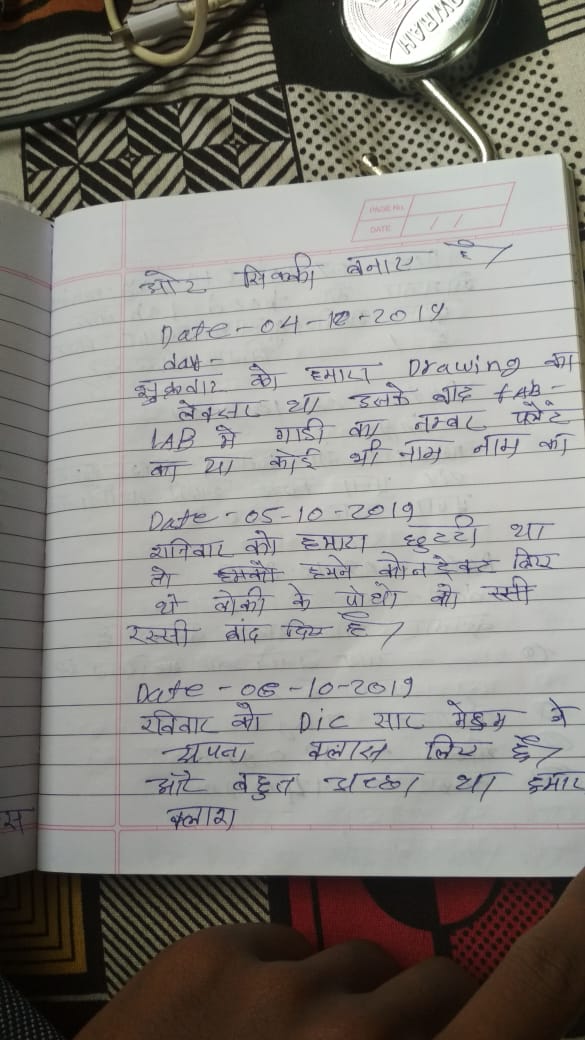 OWRAH
PAGE No.
DATE / /
और सिक्की बनाए है
Date-04-10-2019
day-
शुक्रवार को हमारा Drawing का
लेक्चर था उसके बाद FAB-
LAB मे गाडी का नम्बर प्लेट
का या कोई भी नाम नाम का
Date-05-10-2019
शनिवार को हमारा छुटटी था
तो हमको हमने कोनटेक्ट किए
थे लोकी के पोधो को रस्सी
रस्सी बांद दिए है
Date-06-10-2019
रविवार को Dic सार मेडम ने
अपना क्लास लिए है
और बहुत अच्छा था हमार
क्लाश